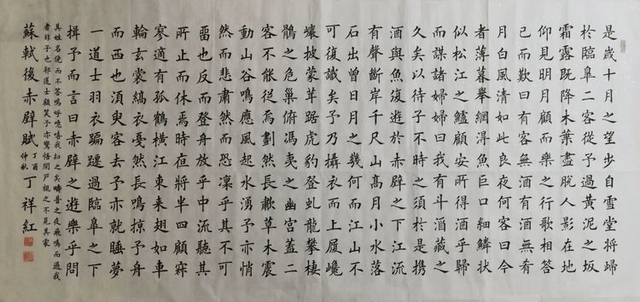 是歲十月之望步自雪堂將歸
於臨皋二客從予過黃泥之坂
霜露既降木葉盡脫人影在地
仰見明月顧而樂之行歌相答
已而歎曰有客無酒有酒無肴
月白風清如此良夜何客曰今
者薄暮舉網得魚巨口細鱗狀
似松江之鱸顧安所得酒乎歸
而謀諸婦婦曰我有斗酒藏之
久矣以待子不時之須於是攜
酒與魚復遊於赤壁之下江流
有聲斷岸千尺山高月小水落
石出曾日月之幾何而江山不
可復識矣予乃攝衣而上履巉
巖披蒙茸踞虎豹登虬龍攀棲
鶻之危巢俯馮夷之幽宮蓋二
客不能從焉劃然長嘯草木震
動山谷鳴應風起水湧予亦悄
然而悲肅然而恐凜乎其不可
畱也反而登舟放乎中流聽其
所止而休焉時夜將半四顧寂
寥適有孤鶴橫江東來翅如車
輪玄裳縞衣戛然長鳴掠予舟
而西也須臾客去予亦就睡夢
一道士羽衣蹁躚過臨皋之下
揖予而言曰赤壁之遊樂乎問
其姓名俛而不答嗚呼噫嘻我知之矣疇昔之夜飛鳴而過我
者非子也邪道士顧笑予亦驚悟開戶視之不見其處
蘇軾後赤壁賦 丁酉仲秋 丁祥紅